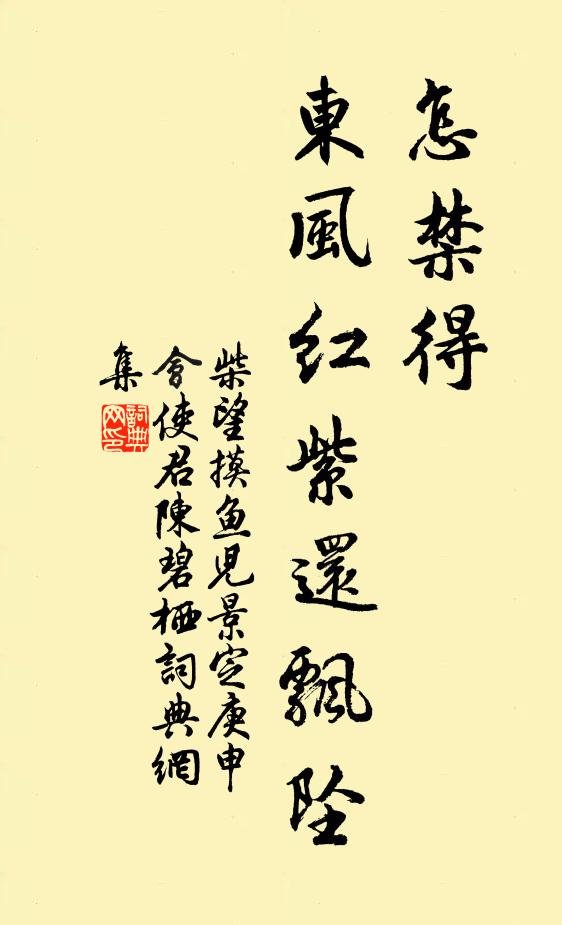 怎禁得
東風紅紫還飄墜
柴望摸魚兒景定庚申
會使君陳碧栖詞典網
集
詞典
网印